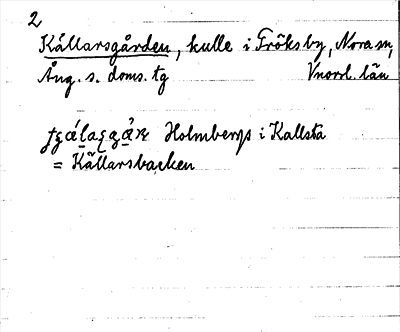 2
Källarsgården, kulle i Fröksby, Nora sn,
Ång. s. doms. tg Vnorrl. län
Holmbergs i Kallsta
= Källarsbacken